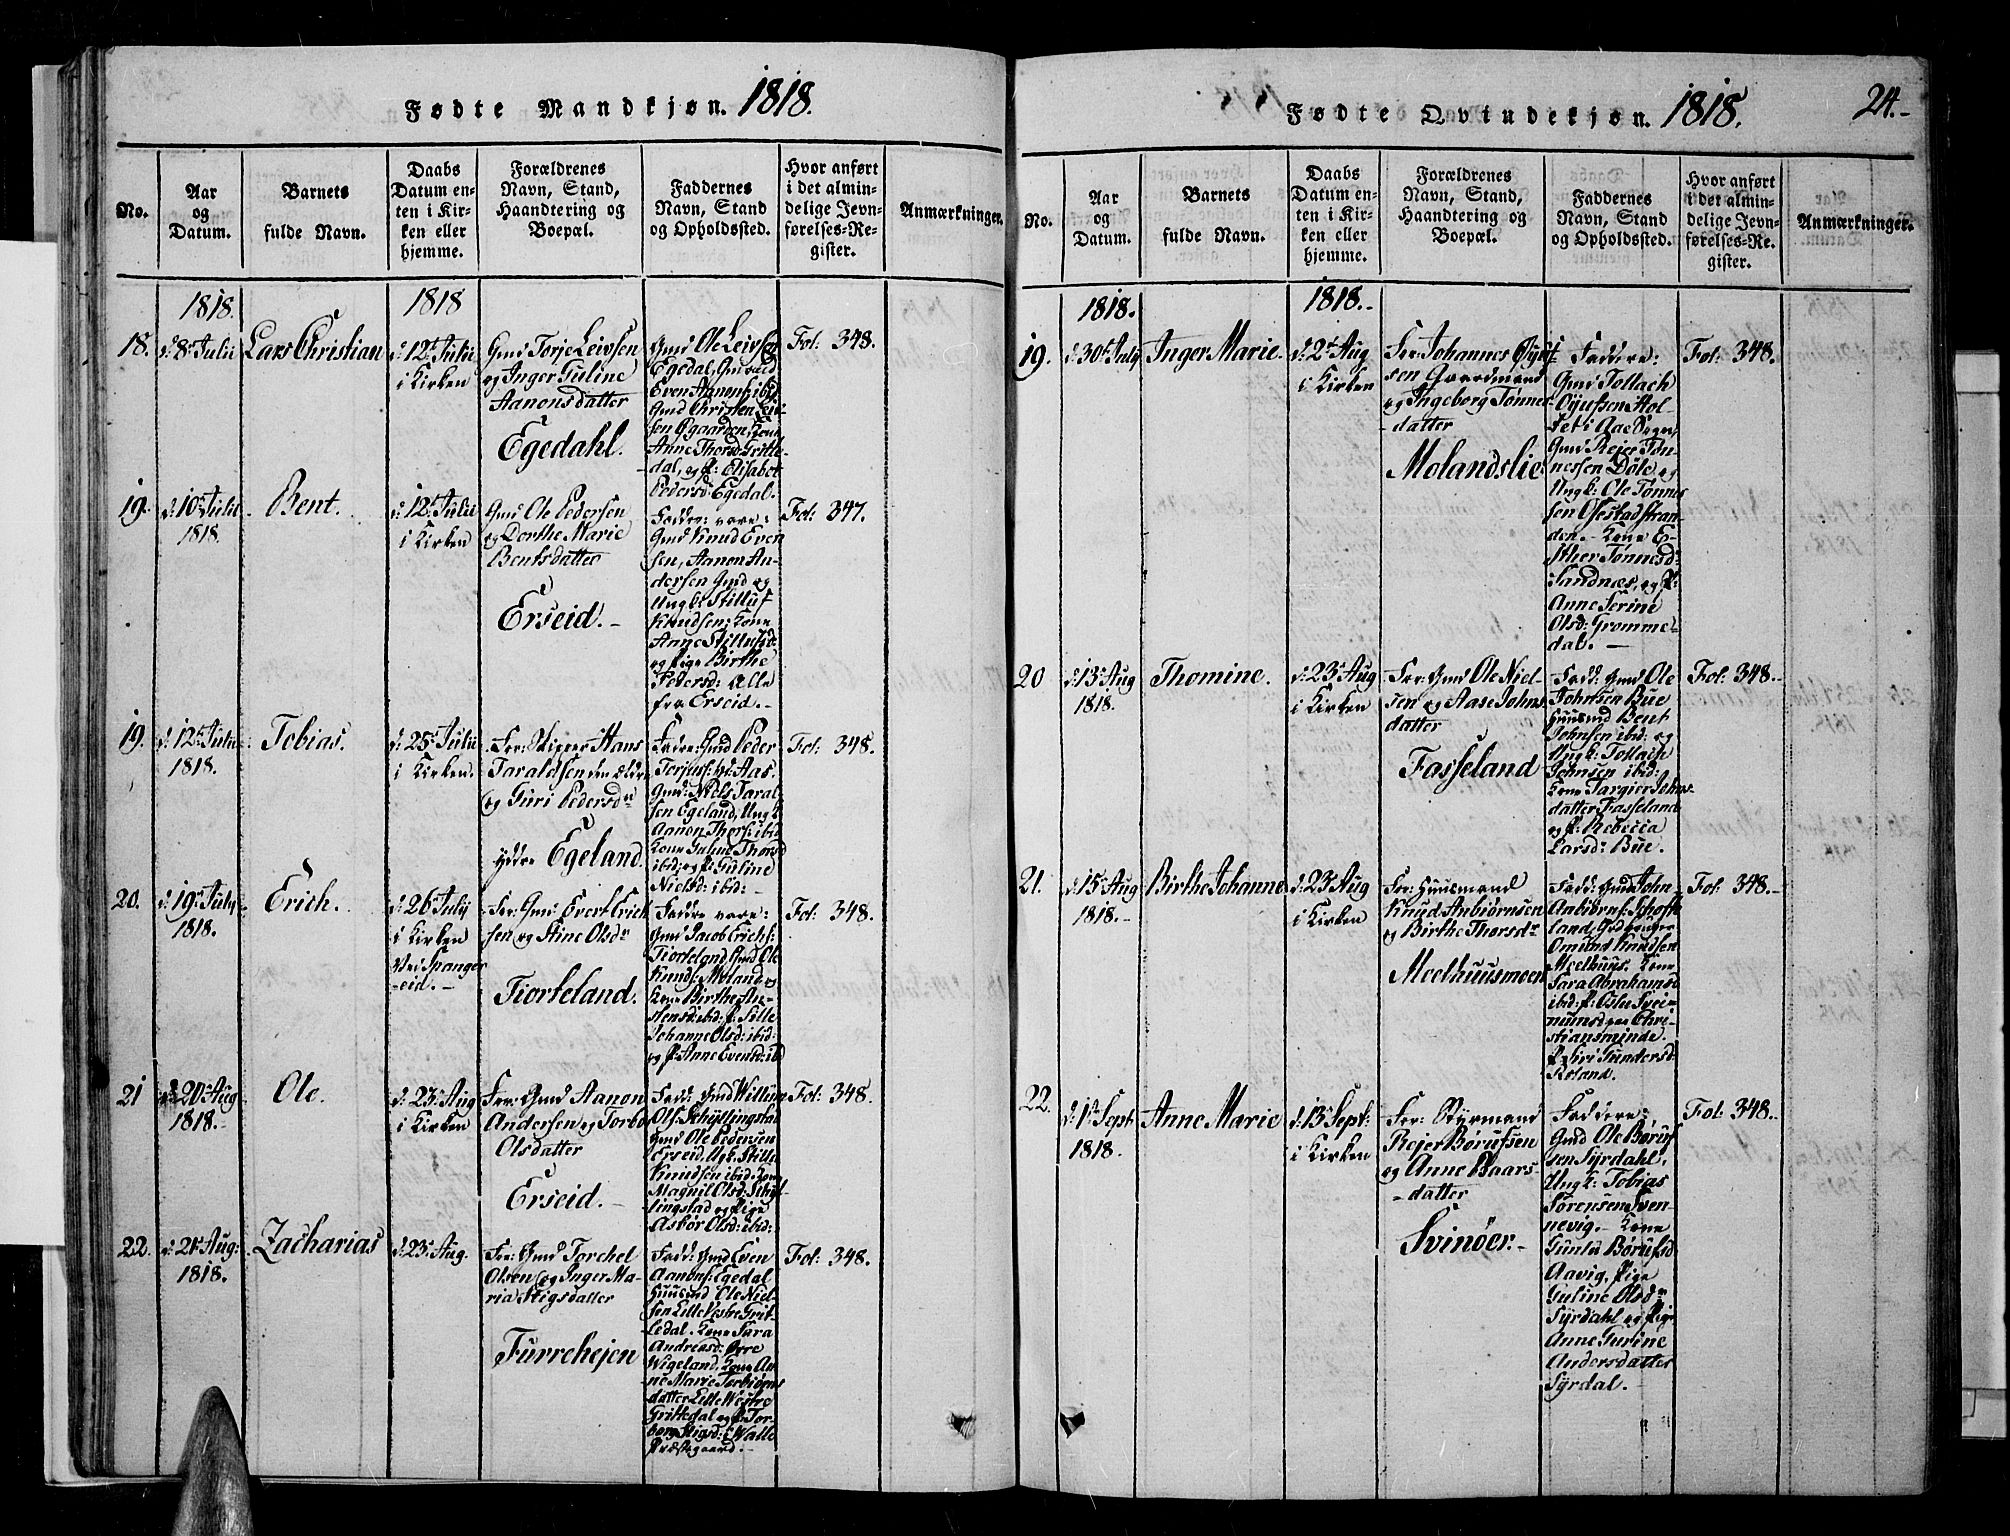 Fødte Mandkjøn. 1818.
No.
Aar
og
Datum.
Barnets
fulde Navn.
Daabs
Datum en-
ten i Kir-
ken eller
hjemme.
Forældrenes
Navn, Stand,
Haandtering og
Boepæl.
Faddernes
Navn, Stand
og Opholdssted.
Hvor anført
i det almin-
delige Jevn-
førelses-Re-
gister.
Anmærkninger.
1818.
1818
18.
d: 8de Julii
Lars Christian
d: 12te Julii
i Kirken
Gmd Torje Leivsen
og Inger Guline
Aanonsdatter
Egedahl.
Gmd Ole Leivsen
Egedal, Gmd
Even Aanons: ibid
Gmd Christen Lei-
sen Øgaarden, Kone
Anne Thorsd Gritte-
dal, og P: Elisabet
Pedersd: Egedal.
Fol: 348.
19.
d: 10de Julii
1818
Bent.
d: 12te Julii
i Kirken
Gmd Ole Pedersen
og Dorthe Marie
Bentsdatter
Erseid. -
Faddre: vare:
Gmd Knud Even
sen, Aanon An-
dersen Gmd og
Ungk: Stilluf
Knudsen; Kone
Anne Stillufsd:
og Pige Birthe
Pedersd: Alle
fra Erseid. -
Fol: 347.
19.
d: 12te Julii
1818.
Tobias.
d: 25de Julii
i Kirken.
For: Skipper Hans
Taraldsen den ældre
og Guri Pedersdr
ydre Egeland.
Fadre: Gmd Peder
Torjus: Aas.
Gmd: Niels Taral-
sen Egeland, Ungk:
Aanon Thors: ibid
Kone Guline Thorsd
ibid: og P: Guline
Nielsd: ibid: -
Fol: 348.
20.
d: 19de July
1818.
Erich.
d: 26de July
i Kirken
ved Spanger
eid. -
For: Gmd: Evert Erich
sen og Stine Olsdr
Fiorteland.
Faddre vare:
Gmd Jacob Erichs:
Fiorteland Gmd Ole
Knuds: Moland og
Kone Birthe An-
stensd: ibid: P: Sille
Johanne Olsd: ibid:
og P: Anne Evensd: ibd
Fol: 348.
21
d: 20de Aug
1818. -
Ole.
d: 23de Aug
i Kirken
For: Gmd Aanon
Andersen og Torbor
Olsdatter
Erseid. -
Fadd: Gmd Willum
Ols: Schyllingstad
Gmd Ole Pedersen
Erseid, Ungk. Stille
Knudsen ibid. Kone
Magnil Olsd: Schyl-
lingstad og Pige
Asbør Olsd: ibid:
Fol: 348.
22.
d: 21de Aug:
1818.
Zacharias
d: 23de Aug.
For: Gmd Torchel
Olsen og Inger Ma-
ria Stigsdatter
Furrehejen
Fadd: Gmd Even
Aanons: Egedal
Huusmd Ole Niel-
sen Lille Vestre Grit-
tedal. Kone Sara
Andreasd: Øvre
Wigeland, Kone An-
ne Marie Torbiørns
datter Lille Westre
Grittedal og P: Tor-
borg Stigsd: Walle
Præstegaard. -
Fol: 348.
Fødte Qvindekjøn. 1818.
24. -
No.
Aar
og
Datum.
Barnets
fulde Navn.
Daabs
Datum en-
ten i Kir-
ken eller
hjemme.
Forældrenes
Navn, Stand,
Haandtering og
Boepæl.
Faddernes
Navn, Stand
og Opholdssted.
Hvor anført
i det almin-
delige Jevn-
førelses-Re-
gister.
Anmærkninger.
1818.
1818.
19.
d: 30te July
Inger Marie.
d: 2de Aug
i Kirken
For: Johannes Øyuf-
sen Gaardmand
og Ingeborg Tønnes
datter
Molandslie
Faddere:
Gmd Tollach
Øyufssen Hol-
tet i Aae Sogn,
Gmd Rejer Tøn-
nessen Døle, og
Ungk: Ole Tønnes
sen Osestadstran-
den. - Kone E-
sther Tønnesd:
Sandnæs, og P:
Anne Serine
Olsd: Gromme-
dal. -
Fol: 348.
20
d: 13de Aug
1818.
Thomine.
d: 23de Aug
i Kirken
For: Gmd Ole Niel-
sen og Aase Johns
datter
Fasseland
Fadd: Gmd Ole
Johnsen Bue
Huusmd Bent
Johnsen ibid: og
Ungk: Tollach
Johnsen ibid:
Kone Targier Johns
datter Fasseland
og P: Rebecca
Larsd: Bue.
Fol: 348. -
21.
d: 15de Aug
1818. -
Birthe Johanne
d: 23de Aug
i Kirken
For: Huusmand
Knud Anbiørnsen
og Birthe Thorsdr
Meelhuusmoen
Fadd: Gmd John
Anbiørns: Schofte
land, Gdbruger
Omund Knudsen
Meelhuus. Kone
Sara Abrahamsd
ibid: P: Osle Svei-
nunsd: paa Chri-
stiansminde.
P: Siri Gundersd
Roland.
Fol: 348. -
22.
d: 1te Sept
1818.
Anne Marie
d: 13de Sept:
i Kirken
For: Styrmand
Rejer Børufsen
og Anne Baars-
datter
Svinøer. -
Faddere:
Gmd Ole Børuf-
sen Syrdahl,
Ungk: Tobias
Sørensen Sven-
nevig. - Kone
Gunlu Børufsd
Aavig, Pige
Guline Olsdr
Syrdahl og Pige
Anne Gurine
Andersdatter
Syrdal. -
Fol: 348. -